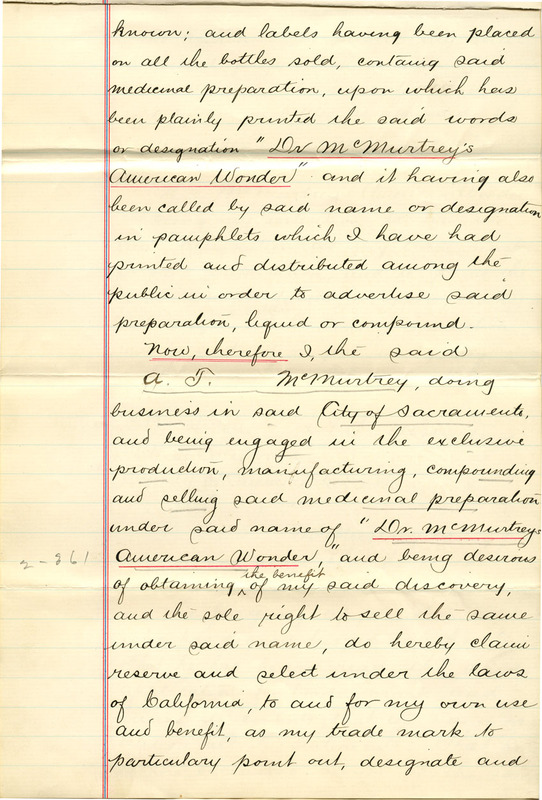 known; and labels having been placed
on all the bottles sold, containg said
medicinal preparation, upon which has
been plainly printed the said words
or designation "Dr McMurtrey's
American Wonder" and it having also
been called by said name or designation
in pamphlets which I have had
printed and distributed among the
public in order to advertise said
preparation, liquid or compound.
Now, therefore I, the said
A. T. McMurtrey, doing
business in said City of Sacramento,
and being engaged in the exclusive
production, manufacturing, compounding
and selling said medicinal preparation
under said name of "Dr. McMurtrey's
2-861
American Wonder," and being desirous
the benefit
of obtaining ^ of my said discovery,
and the sole right to sell the same
under said name, do hereby claim
reserve and select under the laws
of California, to and for my own use
and benefit, as my trade mark to
particulary point out, designate and